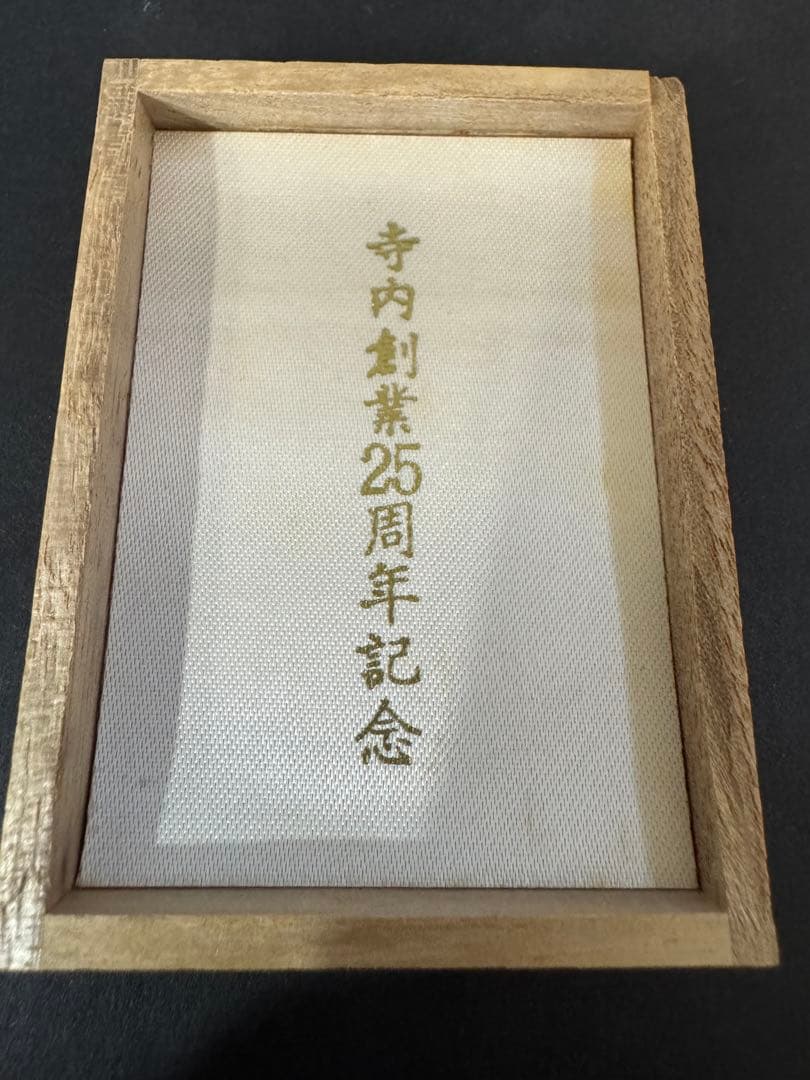 寺内創業25周年記念